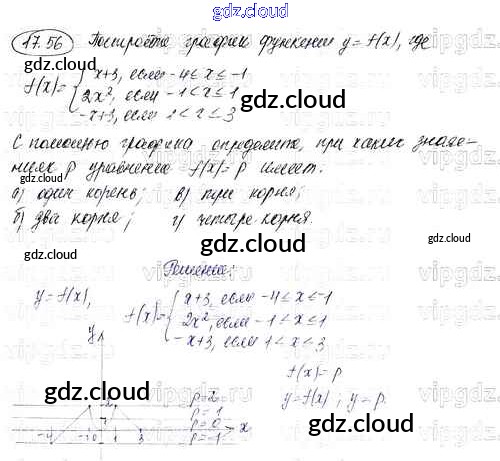 gdz.cloud
17.56 Постройте график функции y = f(x), где
f(x)= { x+3, если -4 ≤ x ≤ -1
2x², если -1 < x ≤ 1
-x+3, если 1 < x ≤ 3
gdz.cloud
С помощью графика определите, при каких значе-
ниях p уравнение f(x)=p имеет:
а) один корень; в) три корня;
б) два корня; г) четыре корня.
gdz.cloud
gdz.cloud
gdz.cloud
Решение:
y = f(x), f(x)= { x+3, если -4 ≤ x ≤ -1
2x², если -1 < x ≤ 1
-x+3, если 1 < x ≤ 3
f(x) = p
y=f(x) ; y = p.
y
gdz.cloud
2
p=2
p=1
p=0
p=-1
-4 -1 0 1 3 x
gdz.cloud